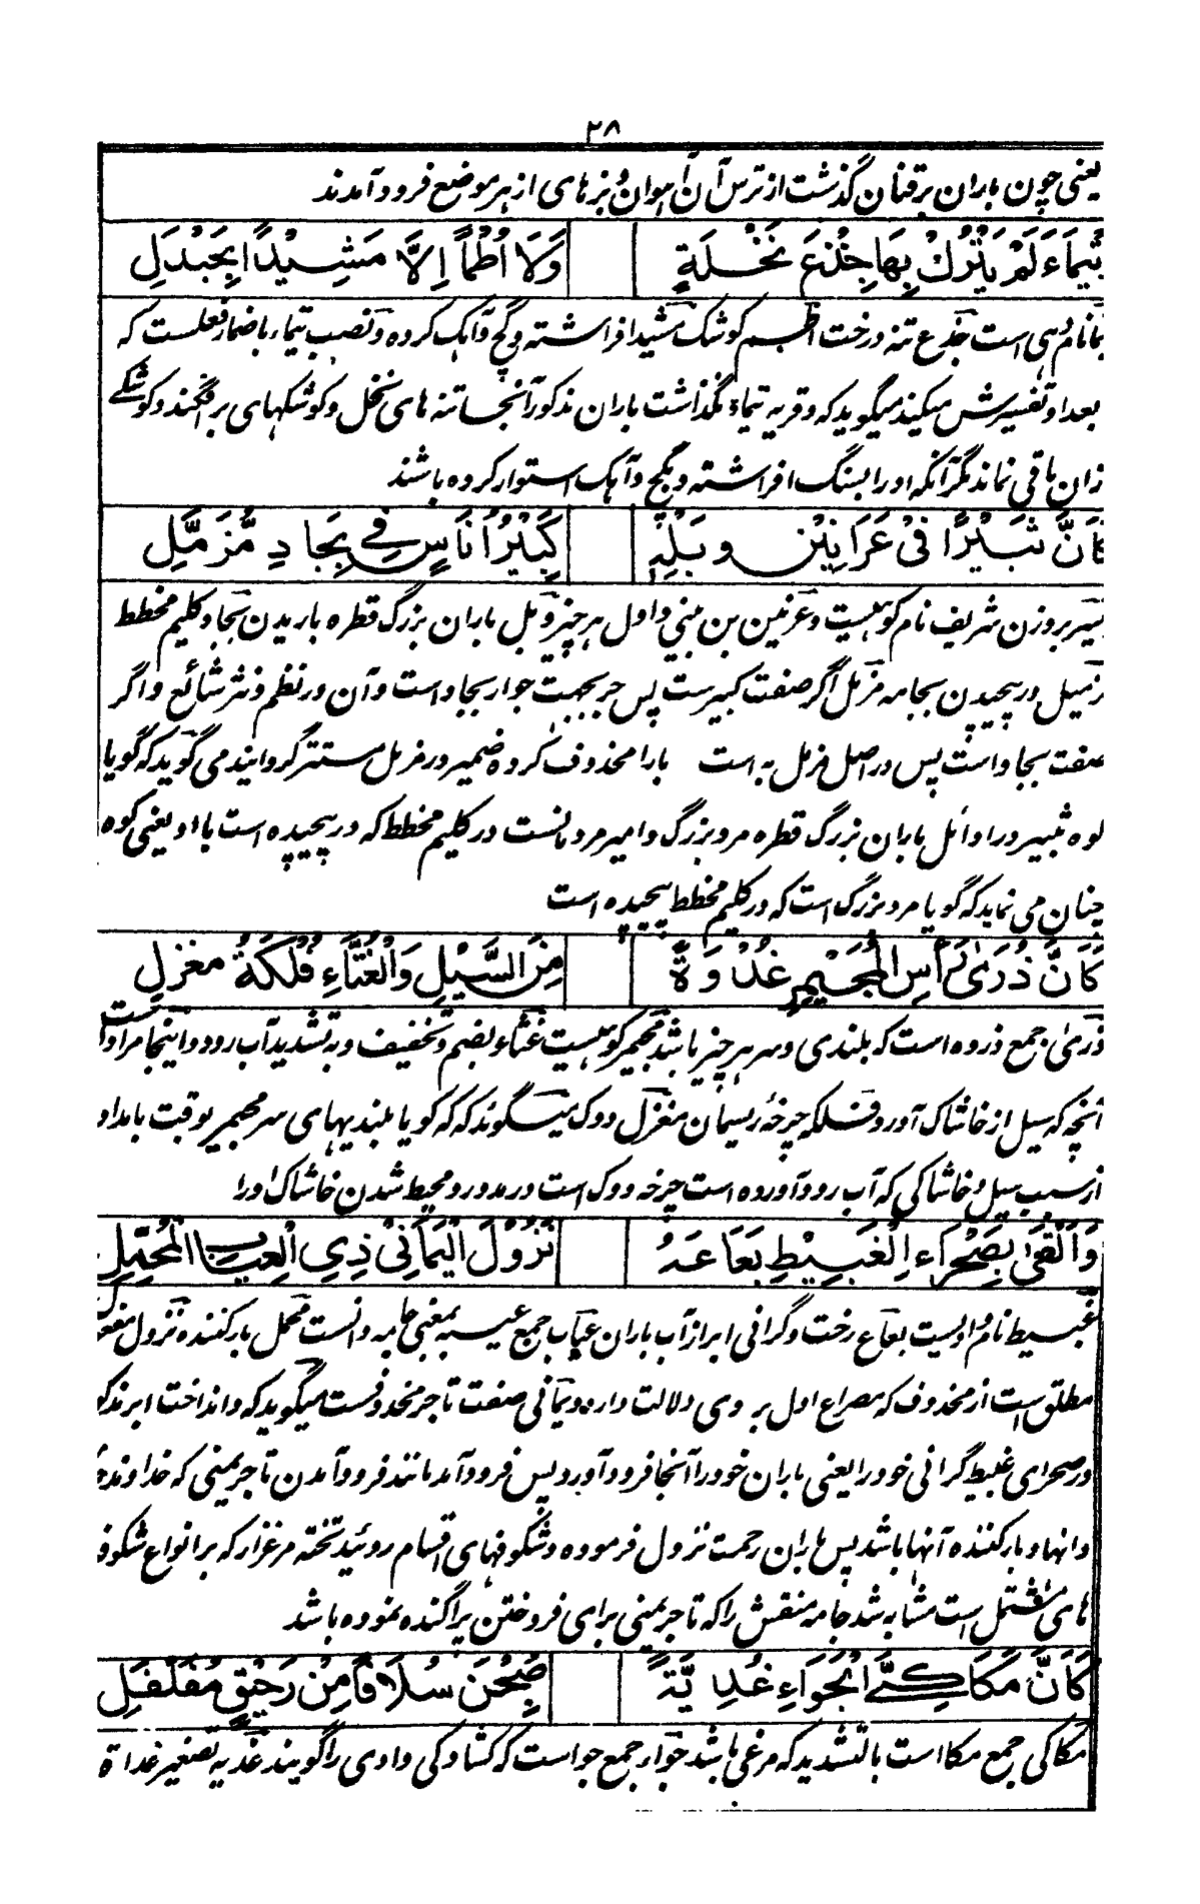 ۲۸
یعنی چون باران بر قنان گذشت از ترس آن آهوان و بزهای از هر موضع فرود آمدند
تُيْمَاءَ لَمْ يَتْرُكْ بِهَا جِذْعَ نَخْلَةٍ وَلَا أُطُمًا إِلَّا مَشِيْدًا بِجَنْدَلِ
نام دهی است جذع تنه درخت اطم کوشک مشید افراشته و گچ و آهک کرده و نصب تیماء باضمار فعلست که
بعد او تفسیرش میکند میگوید که و قریه تیماء نگذاشت باران مذکور آنجا تنه های نخل و کوشکهای بر افگند و کوشکے
زان باقی نماند مگر آنکه او را بسنگ افراشته و بگچ و آهک استوار کرده باشند
كَاَنَّ ثَبِيْرًا فِىْ عَرَانِيْنِ وَبْلِهٖ كَبِيْرُ اُنَاسٍ فِي بِجَادٍ مُّزَمَّلِ
ثبیر بر وزن شریف نام کوهیست و عرنین بن بینی و اول هر چیز وبل باران بزرگ قطره باریدن بجاد کلیم مخطط
تزمیل در پیچیدن بجامه مزمل اگر صفت کبیر ست پس جر بجهت جوار بجاد است و آن در نظم و نثر شائع و اگر
صفت بجاد است پس در اصل مزمل به است با را محذوف کرده ضمیر در مزمل مستتر گردانید می گوید که گویا
کوه ثبیر در اوائل باران بزرگ قطره مرد بزرگ و امیر مردمانست در کلیم مخطط که در پیچیده است با او یعنی کوه
چنان می نماید که گویا مرد بزرگ است که در کلیم مخطط پیچیده است
كَاَنَّ ذُرَىٰ رَأْسِ الْمُجَيْمِرِ غُدْوَةً مِنَ السَّيْلِ وَالْغُثَّاءِ فُلْكَةُ مِغْزَلِ
ذری جمع ذروه است که بلندی و سر هر چیز باشد مجیمر کوهیست غثاء بضم و تخفیف و به تشدید آب رود و اینجا مراد است
آنچه که سیل از خاشاک آورد و فلکه چرخهٔ ریسمان مغزل دوک میگوند که که گویا بلندیهای سر مجیمر بوقت بامداد
از سبب سیل و خاشاکی که آب رود آورده است چرخه دوک است در مدور و محیط شدن خاشاک او را
وَاَلْقَىٰ بِصَحْرَاءِ الْغَبِيْطِ بَعَاعَهُ نُزُوْلَ الْيَمَانِيْ ذِي الْعِيَابِ الْمُحَمَّلِ
غبیط نام وادیست بعاع رخت و گرانی ابر از آب باران عیاب جمع عیبه بمعنی جامه دانست محمل بار کننده نزول مفعول
مطلق است از محذوف که مصراع اول بر وی دلالت دارد و یمانی صفت تاجر محذوفست میگوید که و انداخت ابر مذکو
در صحرای غبیط گرانی خود را یعنی باران خود را آنجا فرود آورد پس فرود آمد مانند فرود آمدن تاجر یمنی که خداوند جا
دانها و بار کننده آنها باشد پس باران رحمت نزول فرموده و شگوفهای اقسام روئید تخته مرغزار که بر انواع شگوف
های مشتمل است مشابه شد جامه منقش را که تاجر یمنی برای فروختن پراگنده نموده باشد
كَاَنَّ مَكَاكِيَّ الْجِوَاءِ غُدَيَّةً صُبِحْنَ سُلَافًا مِنْ رَحِيْقٍ مُفَلْفَلِ
مکاکی جمع مکااست بالتشدید که مرغی باشد جواء جمع جو است که کشادگی وادی را گویند غدیه تصغیر غداة